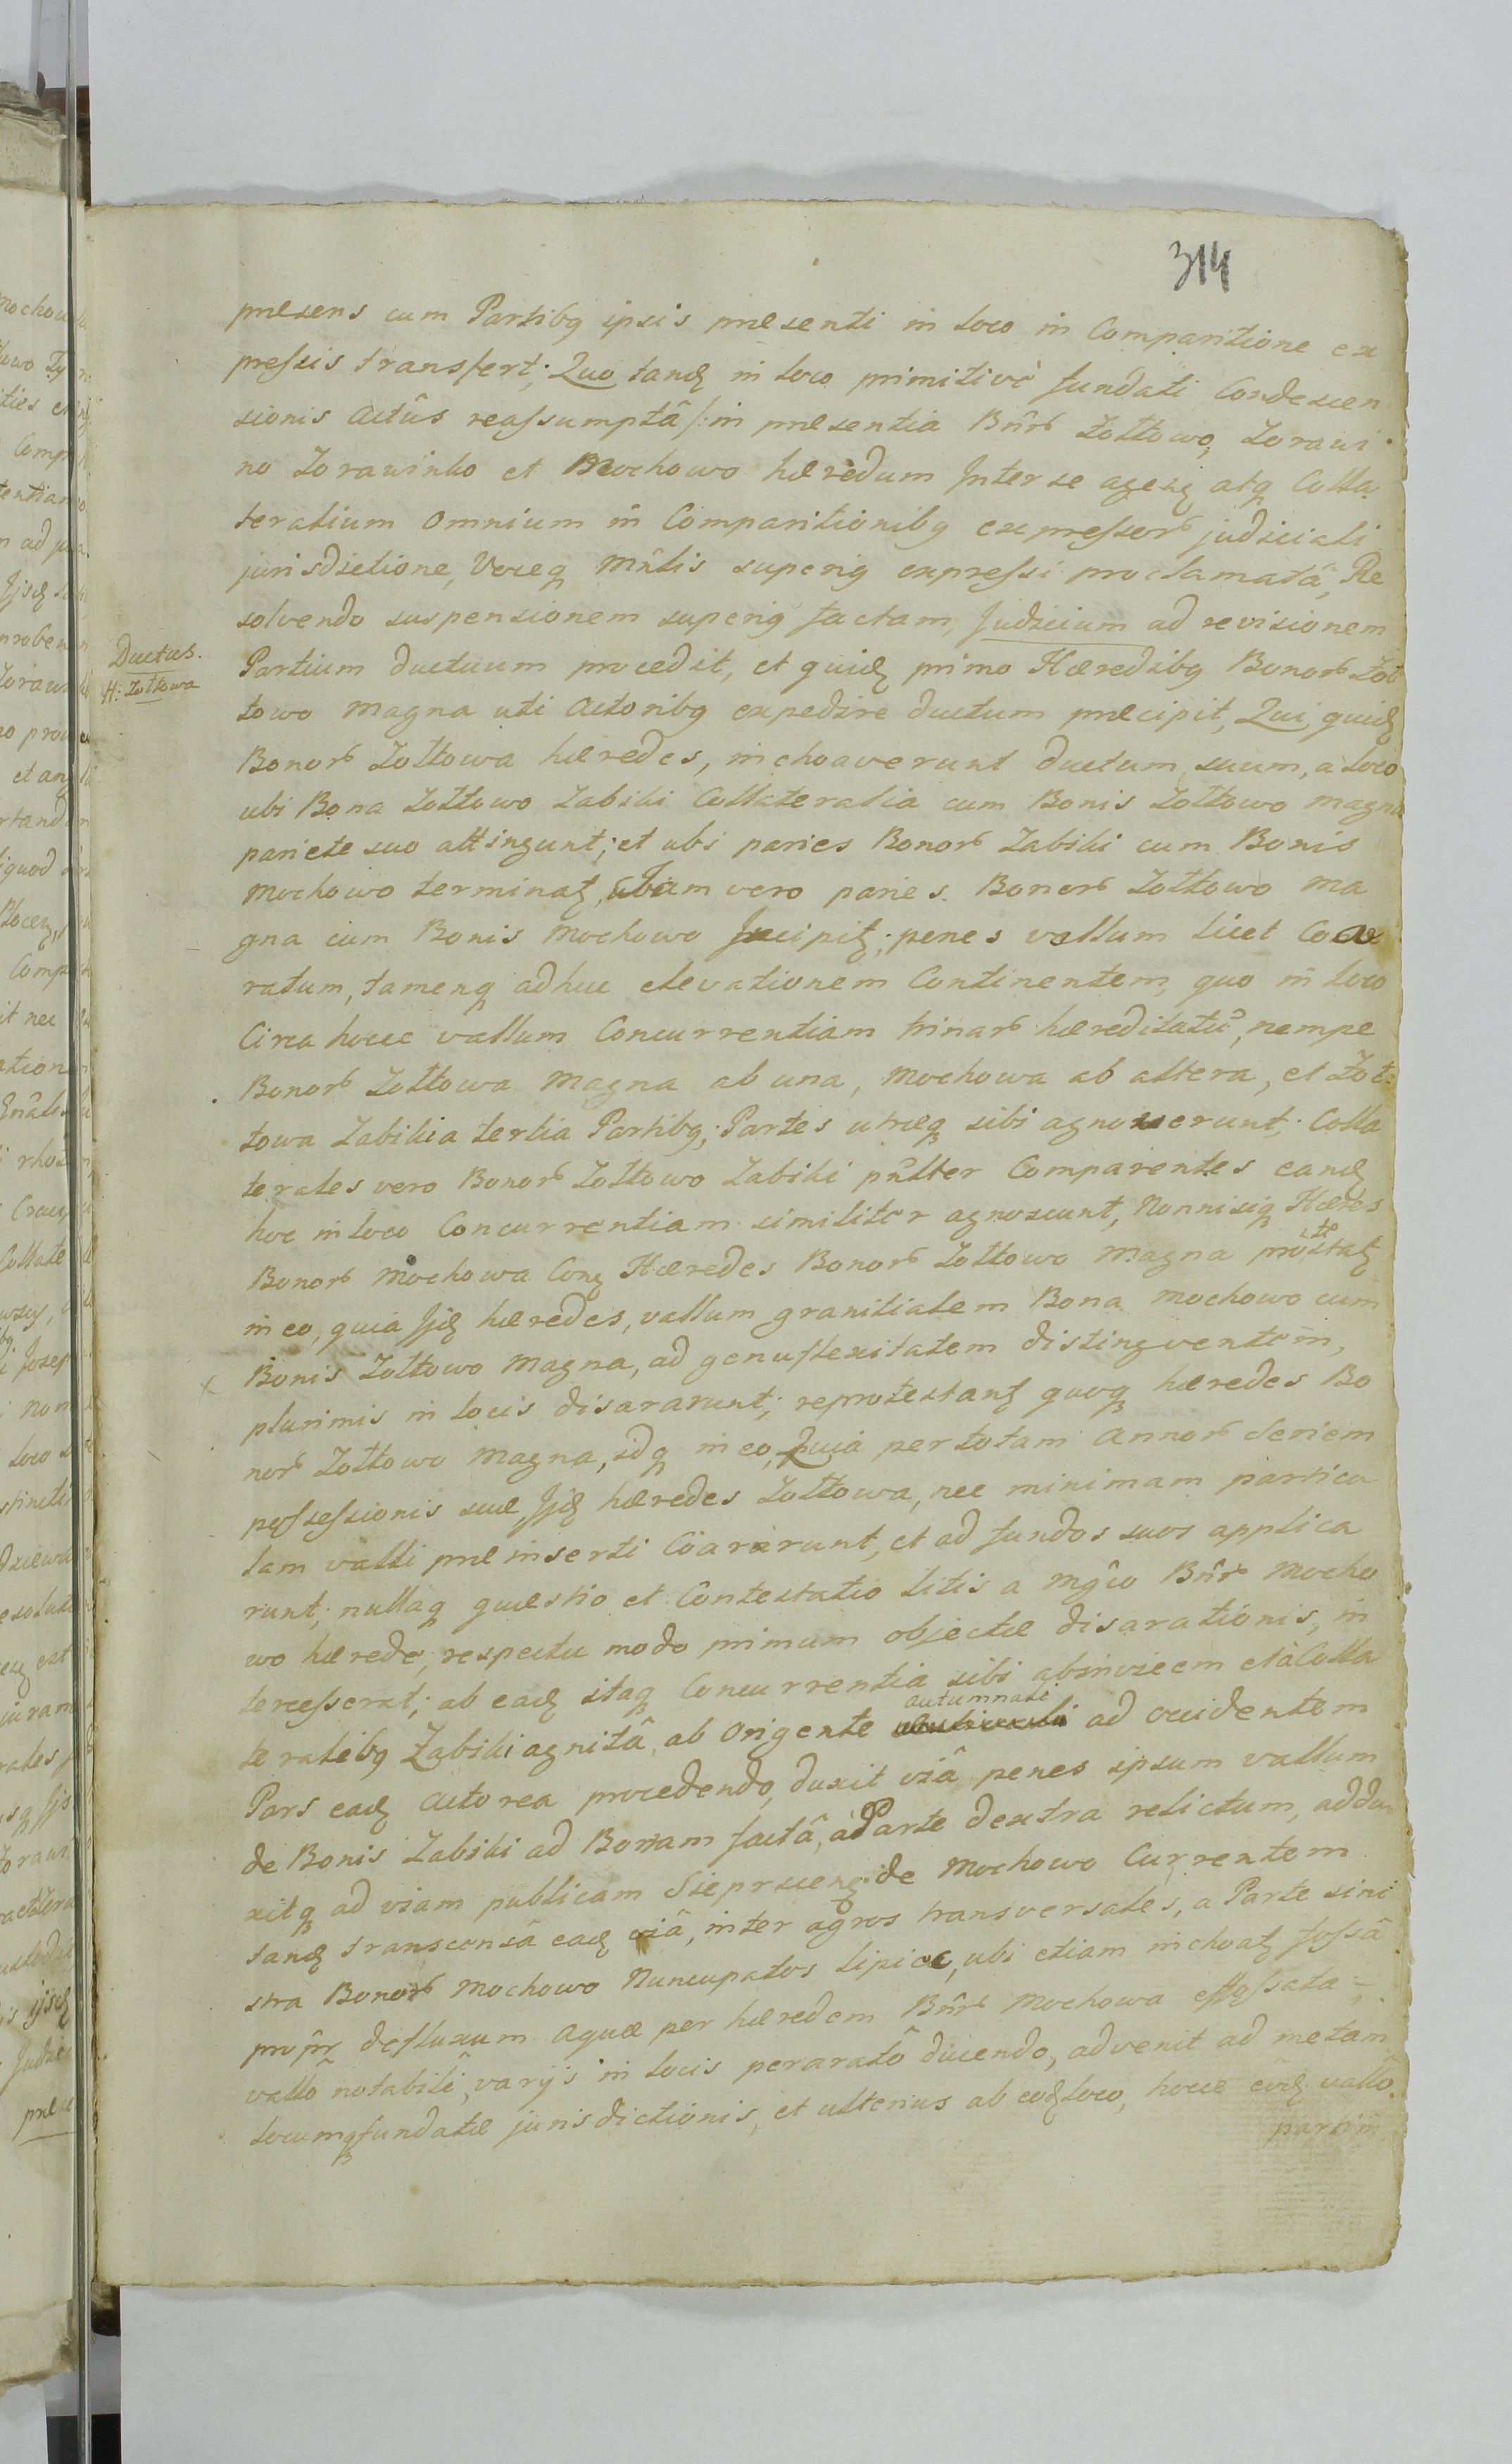 314
præsens cum Partibq ipsis præsenti in loco in Comparitione ex
pressis transfert; Quo tandę in loco primitivè fundati Condescen
sionis Actûs reassumptâ /: in præsentia Bnrô Żołtowo, Zorawi
no Zorawinko et Mochowo hæredum Inter se agen atq Colla
teralium omnium in Comparitionibq expressorô judiciali
jurisdictione, Voceq Mnlis superiq expressi proclamatâ, Re
solvendo suspensionem superiq factam, Judicium ad revisionem
Ductus.
H: Zołtowa
Partium ductuum procedit, et quidę primo Hæredibq Bonorô Żoł
towo magna uti Actoribq expedire ductum præcipit, Qui, quidę
Bonorô Zołtowa hæredes, inchoaverunt ductum suum, a loco
ubi Bona Zołtowo Zabiki Collateralia cum Bonis Zołtowo magna
pariete suo attingunt; et ubi paries Bonorô Zabiki cum Bonis
Mochowo terminatę, Jam vero paries Bonorô Zołtowo ma
gna cum Bonis Mochowo Incipitę; penes vallum licet Coar
ratum, tamenq adhuc elevationem Continentem, quo in loco
Circa hocce vallum Concurrentiam trinarô hæreditatû, nempe
Bonorô Zołtowa Magna ab una, Mochowa ab altera, et Żoł:
towa Zabikia tertia Partibq; Partes utræq sibi agnoverunt. Colla
terales vero Bonorô Zołtowo Zabiki pnlter Comparentes eandę
hoc in loco Concurrentiam similiter agnoscunt, Nonnisiq Hæres
Bonorô Mochowa Conę Hæredes Bonorô Zołtowo Magna protestatę
in eo, quia Jidę hæredes, vallum granitialem Bona Mochowo cum
Bonis Zołtowo Magna, ad genuflexitatem distinguentem,
plurimis in locis disararunt; reprotestantę quoq hæredes Bo
norô Zołtowo Magna, idq in eo, Quia per totam Annorô Seriem
possessionis suæ, Jidę hæredes Zołtowa, nec minimam particu
lam valli præinserti Coararunt, et ad fundos suos applica
runt; nullaq quæstio et Contestatio litis a Mgco Bnrô Mocho
wo hærede, respectu modo primum objectæ disarationis, in
tercesserat; ab eadę itaq Concurrentia sibi abinvicem et à Colla
teralibq Zabiki agnitâ, ab Origente autumnali ad occidentem
Pars eadę Actorea procedendo, duxit viâ penes ipsum vallum
de Bonis Zabiki ad Boriam factâ, à Parte dextra relictum, addu
xitq ad viam publicam Sieprcenę de Mochowo Currentem
tandę transcensâ eadę viâ, inter agros transversales, a Parte sini
stra Bonorô Mochowo Nuncupatos lipice, ubi etiam inchoatę fossâ
propr defluxum Aquæ per hæredem Bnrô Mochowa effossata,
vallô notabili, varijs in locis perarato ducendo, advenit ad metam
locumq fundatæ jurisdictionis, et ulterius ab eodę loco, hocce eodę vallô
partim